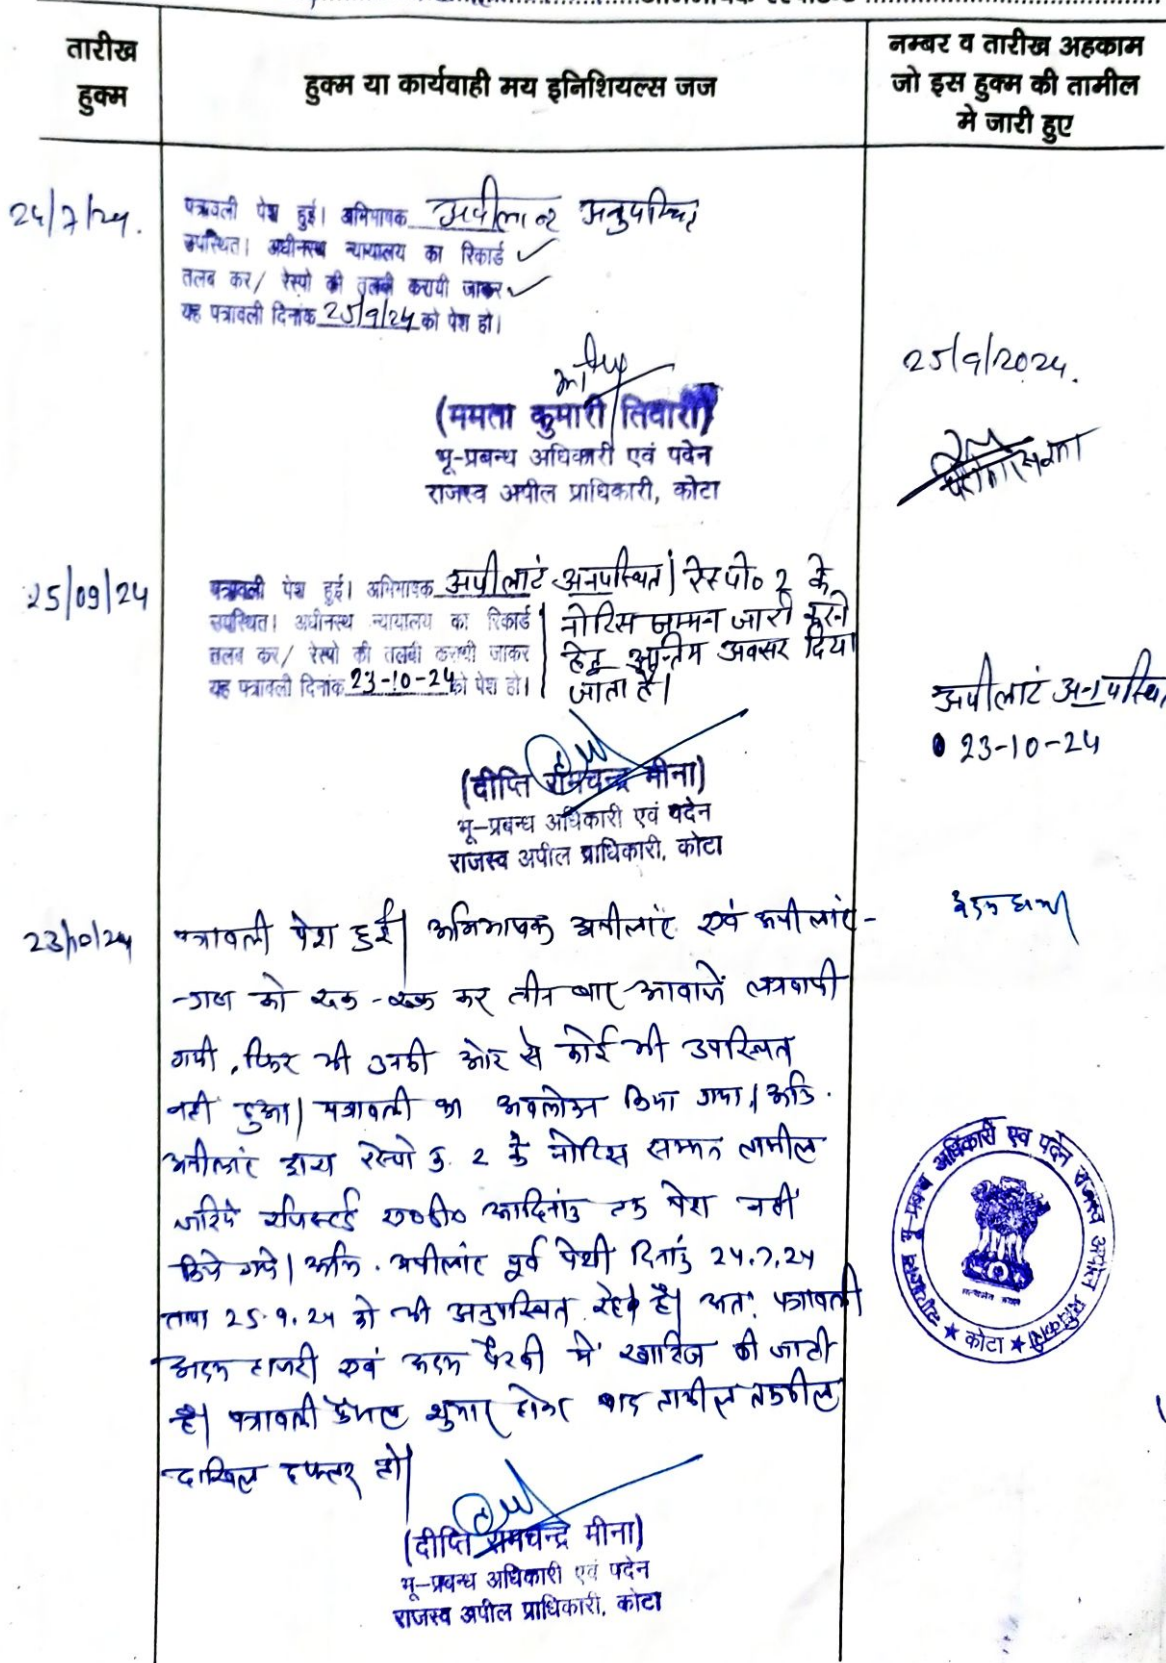 तारीख
हुक्म
हुक्म या कार्यवाही मय इनिशियल्स जज
नम्बर व तारीख अहकाम
जो इस हुक्म की तामील
मे जारी हुए
24/7/24.
पत्रावली पेश हुई। अभिभाषक अपीलान्ट अनुपस्थित
उपस्थित। अधीनस्थ न्यायालय का रिकार्ड ✓
तलब कर/ रेस्पो की तलबी करायी जाकर ✓
यह पत्रावली दिनांक 25/9/24 को पेश हो।
(ममता कुमारी तिवारी)
भू-प्रबन्ध अधिकारी एवं पदेन
राजस्व अपील प्राधिकारी, कोटा
25/9/2024.
25/09/24
पत्रावली पेश हुई। अभिभाषक अपीलांट अनुपस्थित। रेस्पो० 2 के
उपस्थित। अधीनस्थ न्यायालय का रिकार्ड नोटिस सम्मन जारी करने
तलब कर/ रेस्पो की तलबी करायी जाकर हेतु अन्तिम अवसर दिया
यह पत्रावली दिनांक 23-10-24 को पेश हो। जाता है।
अपीलांट अनुपस्थित
23-10-24
(दीप्ति रामचन्द्र मीना)
भू-प्रबन्ध अधिकारी एवं पदेन
राजस्व अपील प्राधिकारी, कोटा
23/10/24
पत्रावली पेश हुई। अभिभाषक अपीलांट एवं अपीलांट-
-गण को एक-एक कर तीन बार आवाजें लगवायी
गयी, फिर भी उनकी ओर से कोई भी उपस्थित
नहीं हुआ। पत्रावली का अवलोकन किया गया। अभि.
अपीलांट द्वारा रेस्पो क्र. 2 के नोटिस सम्मन तामील
जरिये रजिस्टर्ड ए०डी० आदिनांक तक पेश नहीं
किये गये। अभि. अपीलांट पूर्व पेशी दिनांक 24.7.24
तथा 25.9.24 को भी अनुपस्थित रहे है। अतः पत्रावली
अदम हाजरी एवं अदम पैरवी में खारिज की जाती
है। पत्रावली फैसल शुमार होकर बाद तामील तकमील
दाखिल दफ्तर हो।
(दीप्ति रामचन्द्र मीना)
भू-प्रबन्ध अधिकारी एवं पदेन
राजस्व अपील प्राधिकारी, कोटा
न्यायालय भू-प्रबन्ध अधिकारी एवं पदेन राजस्व अपील प्राधिकारी
★ कोटा ★